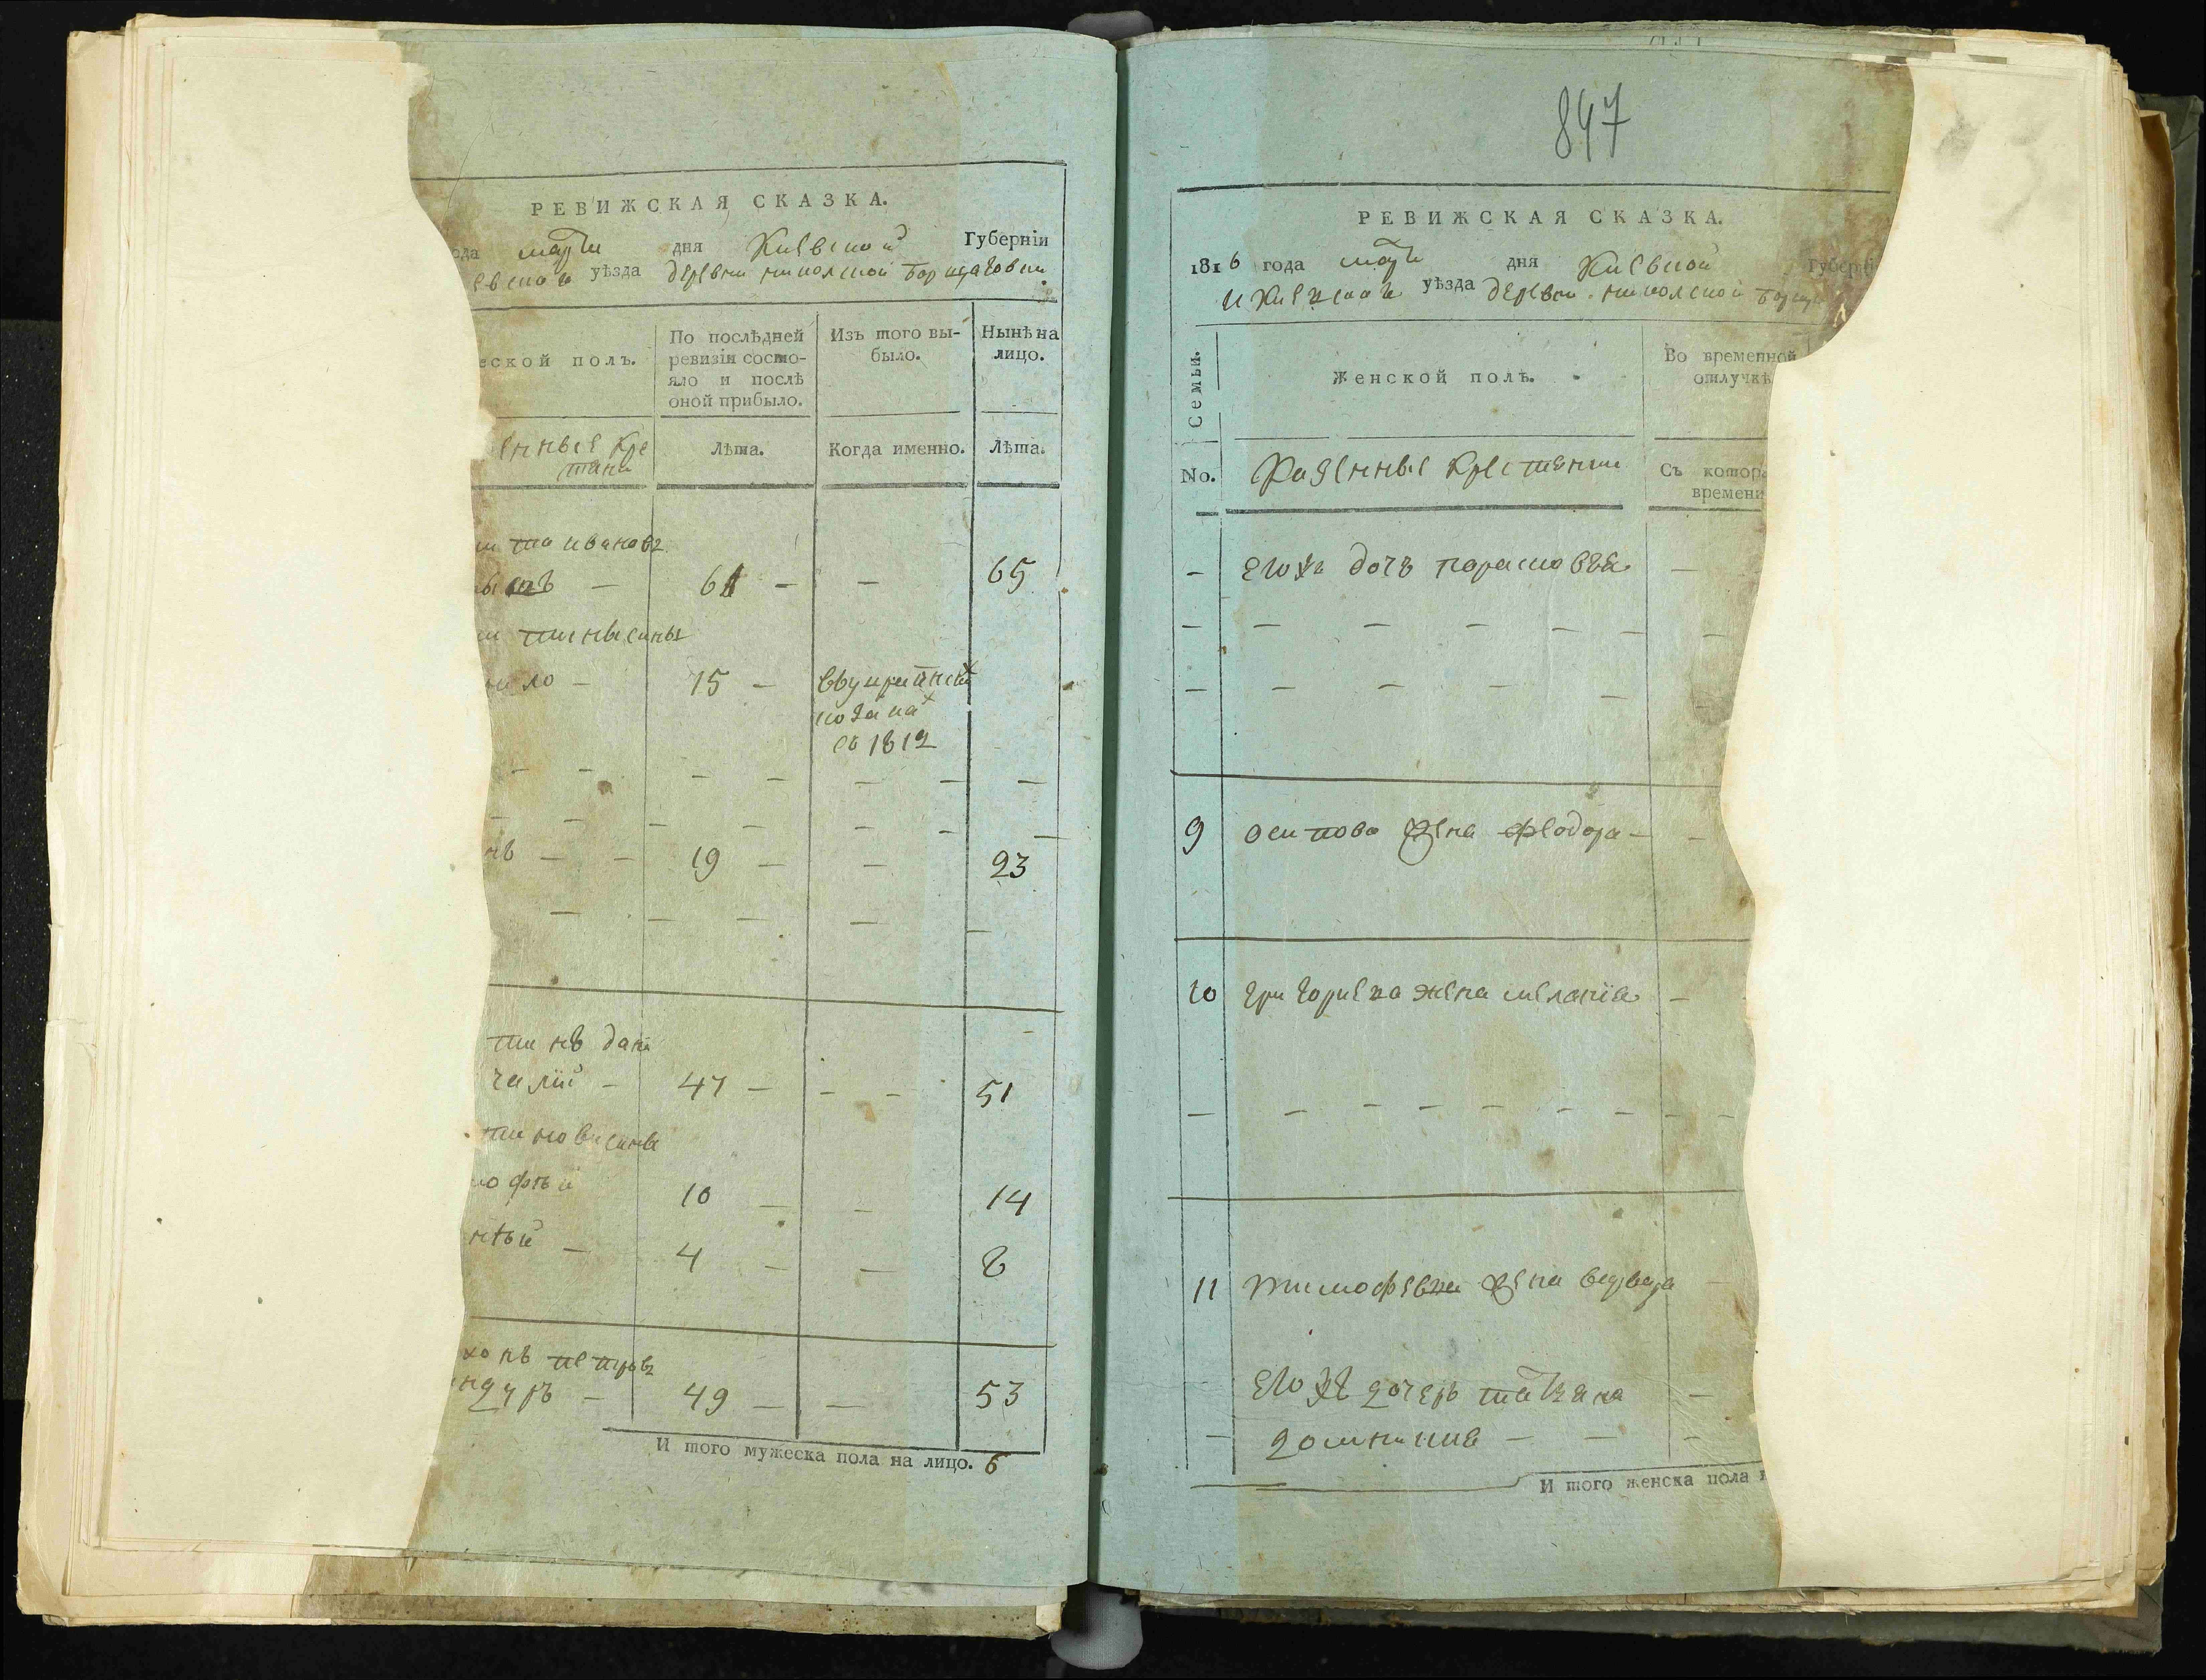 РЕВИЖСКАЯ СКАЗКА.
ода марта дня Киевской Губерніи
евскаго уѣзда деревни никольской Борщаговки
еской полъ.
По послѣдней ревизіи состо-
яло и послѣ
оной прибыло.
Изъ того вы-
было.
Нынѣ на
лицо.
енные кре
стяни
Лѣта.
Когда именно.
Лѣта.
та Иванов
61 — — 65
ило — 15 —
козака
съ 1812
нъ — — 19 — — 23
тинъ
чалій — 47 — — — 51
офѣй 10 — — 14
нтѣй — 4 — — 8
хонъ петровъ
ндуръ — 49 — — 53
И того мужеска пола на лицо. 6
847
РЕВИЖСКАЯ СКАЗКА.
1816 года марта дня Киевской Губерні
и Киевскаго уѣзда деревни никольской Борща
Семьи.
Женской полъ.
Во временной
отлучкѣ
No.
Казенные крестянки
Съ котора
времени
— его же дочъ парасковѣя —
9 осипова жена феодора —
10 григориева жена меланія —
11 тимофеева жена варвара
его же дочеръ татяна —
— домникия — — —
И того женска пола н